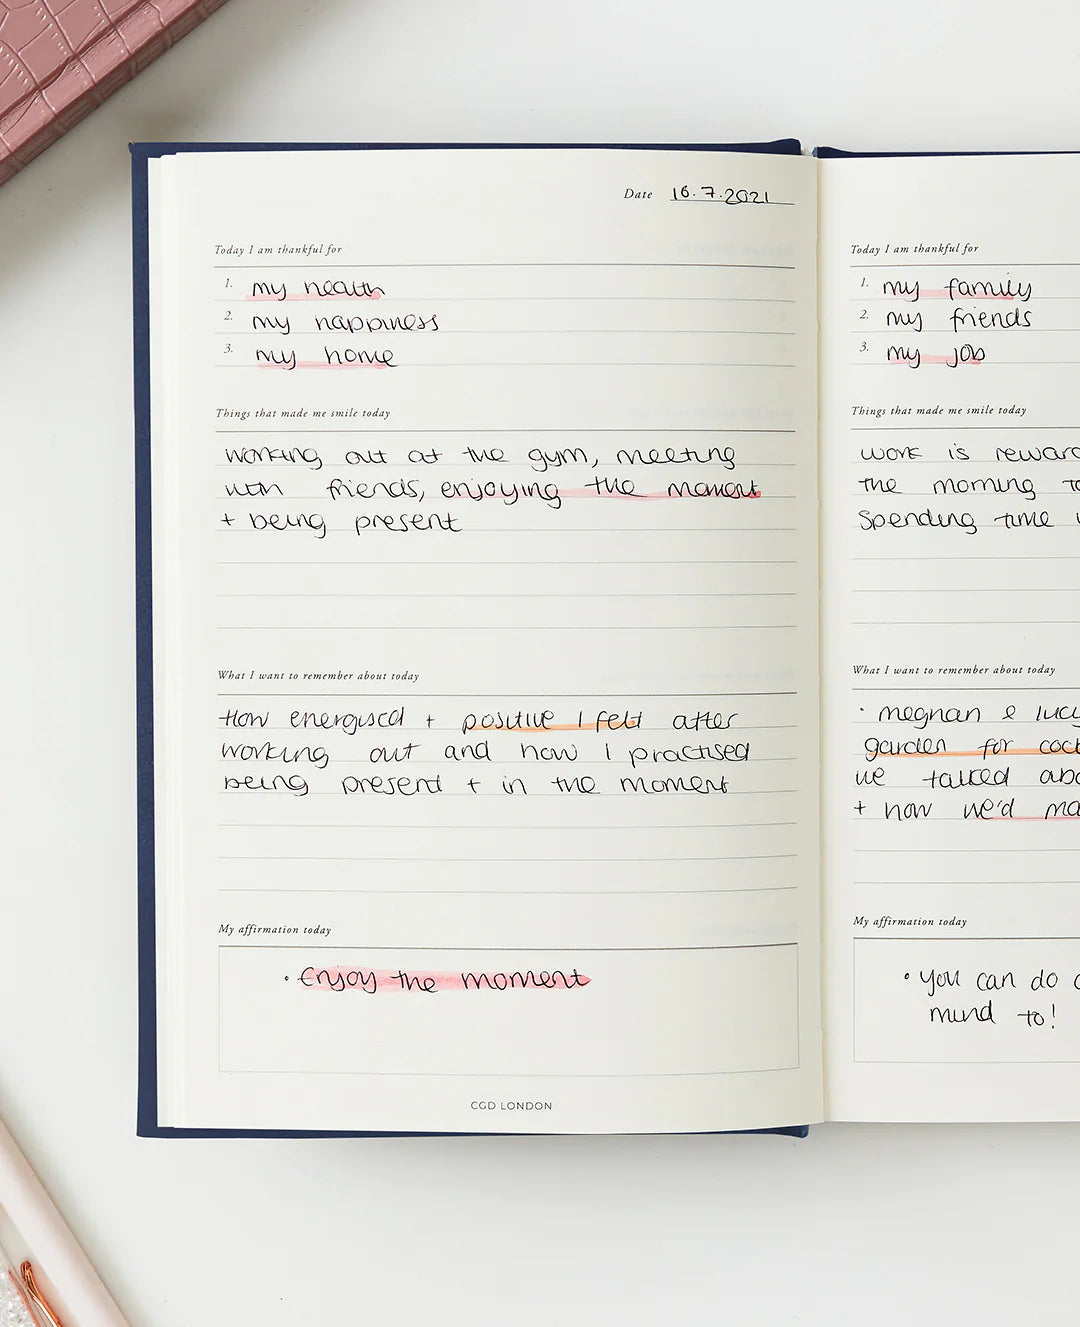 Date 16.7.2021
Today I am thankful for
1. my health
2. my happiness
3. my home
Things that made me smile today
working out at the gym, meeting
with friends, enjoying the moment
+ being present
What I want to remember about today
How energised + positive I felt after
working out and how I practised
being present + in the moment
My affirmation today
• Enjoy the moment
CGD LONDON
Today I am thankful for
1. my family
2. my friends
3. my job
Things that made me smile today
work is
the morning
Spending time
What I want to remember about today
• meghan &
garden for
we talked
+ how we'd
My affirmation today
• You can do
mind to!